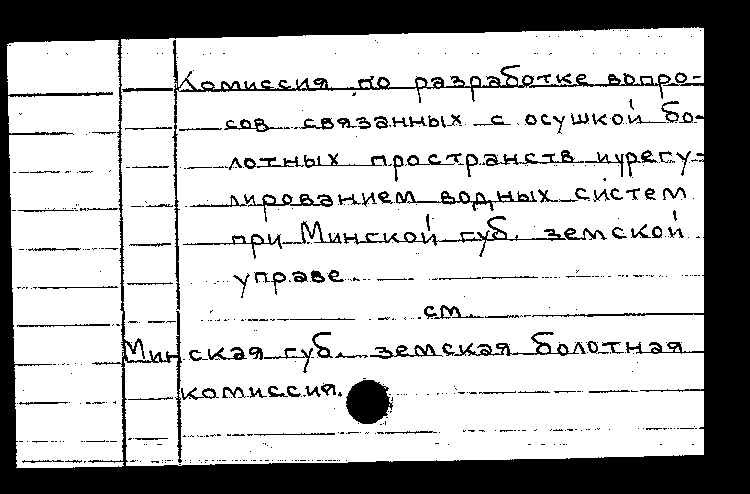 Комиссия по разработке вопро-
сов связанных с осушкой бо-
лотных пространств и урегу-
лированием водных систем
при Минской губ. земской
управе.
см.
Минская губ. земская болотная
комиссия.